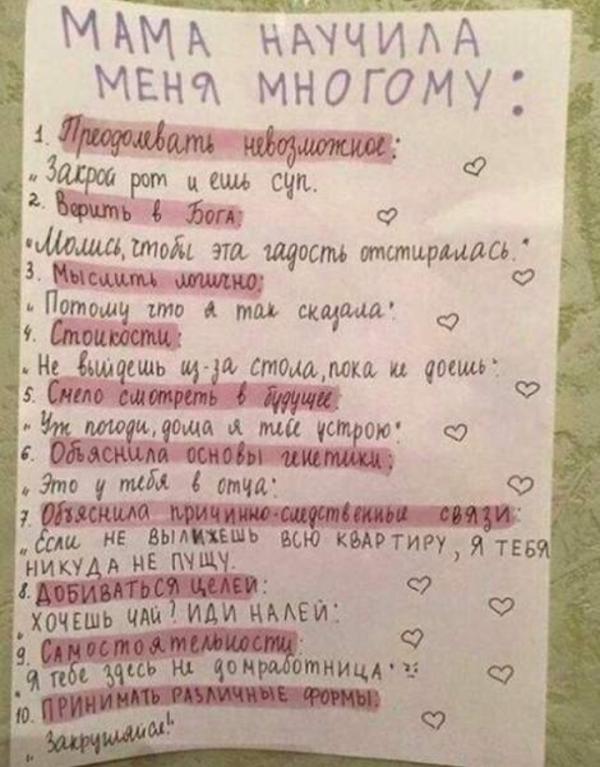 МАМА НАУЧИЛА
МЕНЯ МНОГОМУ:
1. Преодолевать невозможное:
„Закрой рот и ешь суп.
2. Верить в Бога:
"Молись, чтобы эта гадость отстиралась."
3. Мыслить логично:
„Потому что я так сказала".
4. Стойкости:
„Не выйдешь из-за стола, пока не доешь".
5. Смело смотреть в будущее:
„Уж погоди, дома я тебе устрою"
6. Объяснила основы генетики:
„Это у тебя в отца".
7. Объяснила причинно-следственные связи:
„Если НЕ ВЫЛИЖЕШЬ ВСЮ КВАРТИРУ, Я ТЕБЯ
НИКУДА НЕ ПУЩУ.
8. ДОБИВАТЬСЯ ЦЕЛЕЙ:
„ХОЧЕШЬ ЧАЙ? ИДИ НАЛЕЙ".
9. Самостоятельности:
"Я тебе здесь не домработница"
10. ПРИНИМАТЬ РАЗЛИЧНЫЕ ФОРМЫ:
„Закругляйся!"